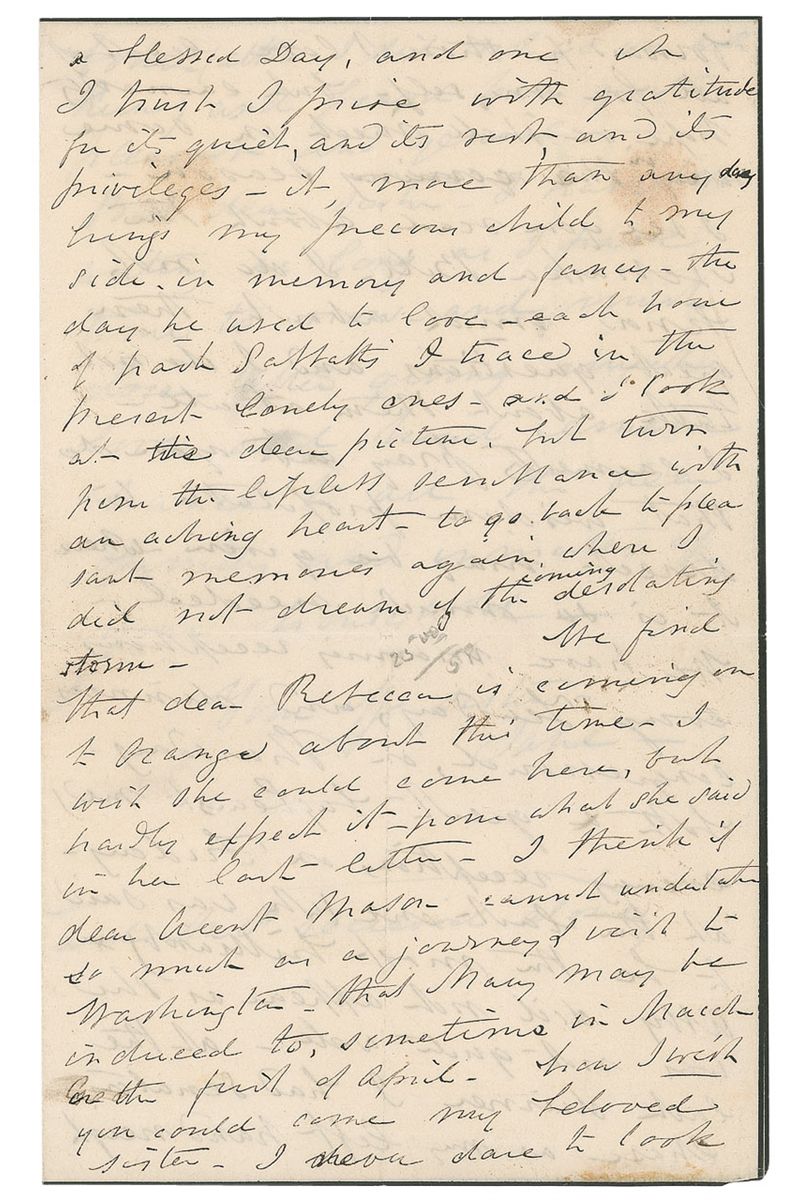 a blessed Day, and one wh
I trust I prize with gratitude
for its quiet, and its rest, and its
privileges – it, more than any day
brings my precious child to my
side – in memory and fancy – the
day he used to love – each hour
of past Sabbaths I trace in the
present lonely ones – and I look
at the dear picture, but turn
from the lifeless semblance with
an aching heart – to go back to plea
sant memories again, where I
did not dream of the coming desolating
storm –
We find
that dear Rebecca is coming on
to Orange about this time – I
wish she could come here, but
hardly expect it – from what she said
in her last letter – I think if
dear Aunt Mason cannot undertake
so much as a journey & visit to
Washington – that Mary may be
induced to, sometime in March
or the first of April – how I wish
you could come my beloved
sister – I never dare to look